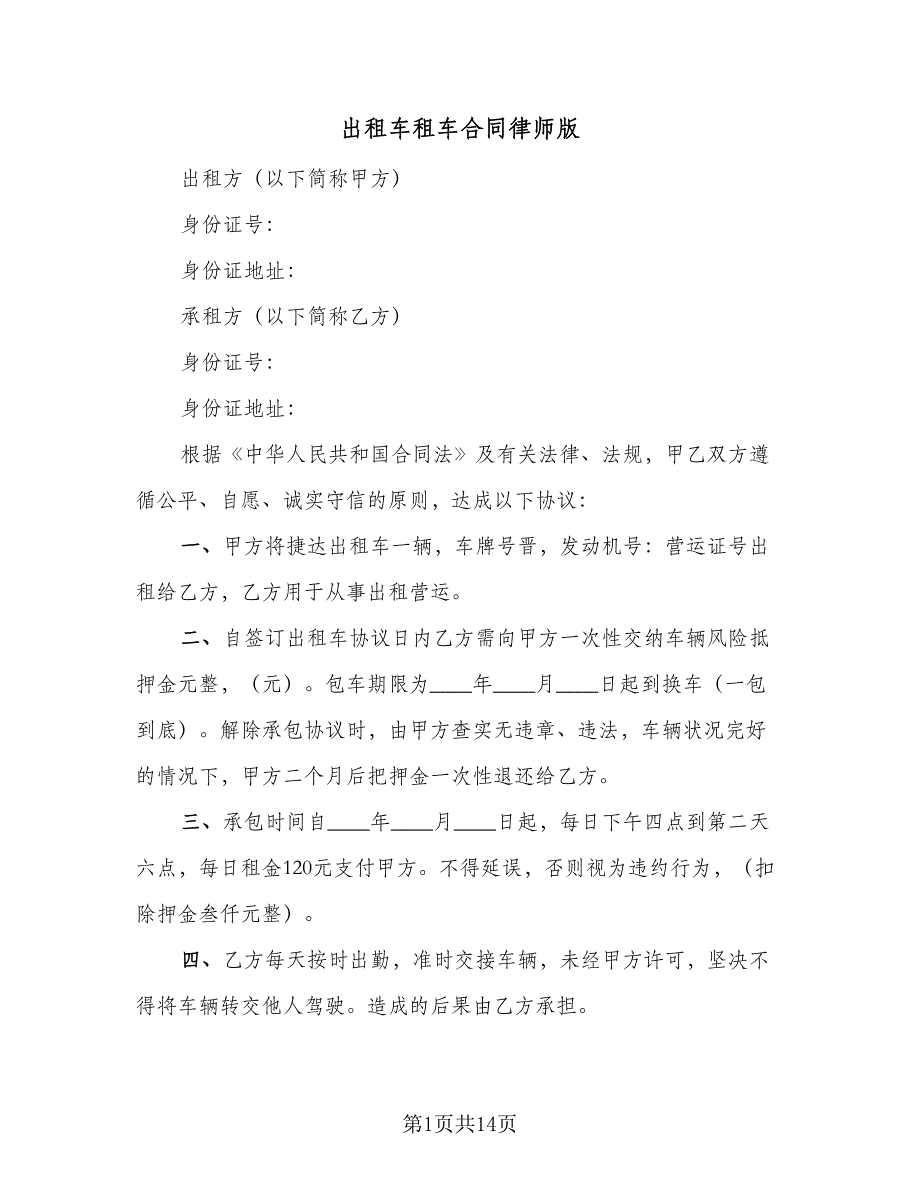 出租车租车合同律师版
出租方（以下简称甲方）
身份证号：
身份证地址：
承租方（以下简称乙方）
身份证号：
身份证地址：
根据《中华人民共和国合同法》及有关法律、法规，甲乙双方遵
循公平、自愿、诚实守信的原则，达成以下协议：
一、甲方将捷达出租车一辆，车牌号晋，发动机号：营运证号出
租给乙方，乙方用于从事出租营运。
二、自签订出租车协议日内乙方需向甲方一次性交纳车辆风险抵
押金元整，（元）。包车期限为____年____月____日起到换车（一包
到底）。解除承包协议时，由甲方查实无违章、违法，车辆状况完好
的情况下，甲方二个月后把押金一次性退还给乙方。
三、承包时间自____年____月____日起，每日下午四点到第二天
六点，每日租金120元支付甲方。不得延误，否则视为违约行为，（扣
除押金叁仟元整）。
四、乙方每天按时出勤，准时交接车辆，未经甲方许可，坚决不
得将车辆转交他人驾驶。造成的后果由乙方承担。
第1页共14页